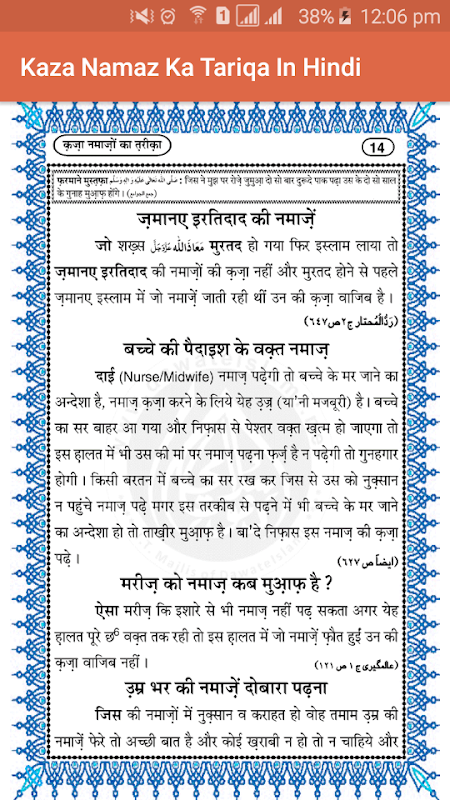 38% 12:06 pm
Kaza Namaz Ka Tariqa In Hindi
क़ज़ा नमाज़ों का त़रीक़ा
14
फ़रमाने मुस्त़फ़ा صلى الله تعالى عليه واله وسلم : जिस ने मुझ पर रोज़े जुमुआ़ दो सो बार दुरूदे पाक पढ़ा उस के दो सो साल
के गुनाह मुआ़फ़ होंगे । (جمع الجوامع)
ज़मानए इरतिदाद की नमाज़ें
जो शख़्स مَعَاذَاللّٰه عَزَّوَجَلَّ मुरतद हो गया फिर इस्लाम लाया तो
ज़मानए इरतिदाद की नमाज़ों की क़ज़ा नहीं और मुरतद होने से पहले
ज़मानए इस्लाम में जो नमाज़ें जाती रही थीं उन की क़ज़ा वाजिब है ।
(رَدُّالْمُحتار ج٢ ص٦٤٧)
बच्चे की पैदाइश के वक़्त नमाज़
दाई (Nurse/Midwife) नमाज़ पढ़ेगी तो बच्चे के मर जाने का
अन्देशा है, नमाज़ क़ज़ा करने के लिये येह उ़ज़्र (या'नी मजबूरी) है । बच्चे
का सर बाहर आ गया और निफ़ास से पेशतर वक़्त ख़त्म हो जाएगा तो
इस ह़ालत में भी उस की मां पर नमाज़ पढ़ना फ़र्ज़ है न पढ़ेगी तो गुनहगार
होगी । किसी बरतन में बच्चे का सर रख कर जिस से उस को नुक़्सान
न पहुंचे नमाज़ पढ़े मगर इस तरकीब से पढ़ने में भी बच्चे के मर जाने
का अन्देशा हो तो ताख़ीर मुआ़फ़ है । बा'दे निफ़ास इस नमाज़ की क़ज़ा
पढ़े । (ایضاً ص ٦٢٧)
मरीज़ को नमाज़ कब मुआ़फ़ है ?
ऐसा मरीज़ कि इशारे से भी नमाज़ नहीं पढ़ सकता अगर येह
ह़ालत पूरे छ⁶ वक़्त तक रही तो इस ह़ालत में जो नमाज़ें फ़ौत हुईं उन की
क़ज़ा वाजिब नहीं । (عالمگیری ج ١ ص ١٢١)
उ़म्र भर की नमाज़ें दोबारा पढ़ना
जिस की नमाज़ों में नुक़्सान व कराहत हो वोह तमाम उ़म्र की
नमाज़ें फेरे तो अच्छी बात है और कोई ख़राबी न हो तो न चाहिये और